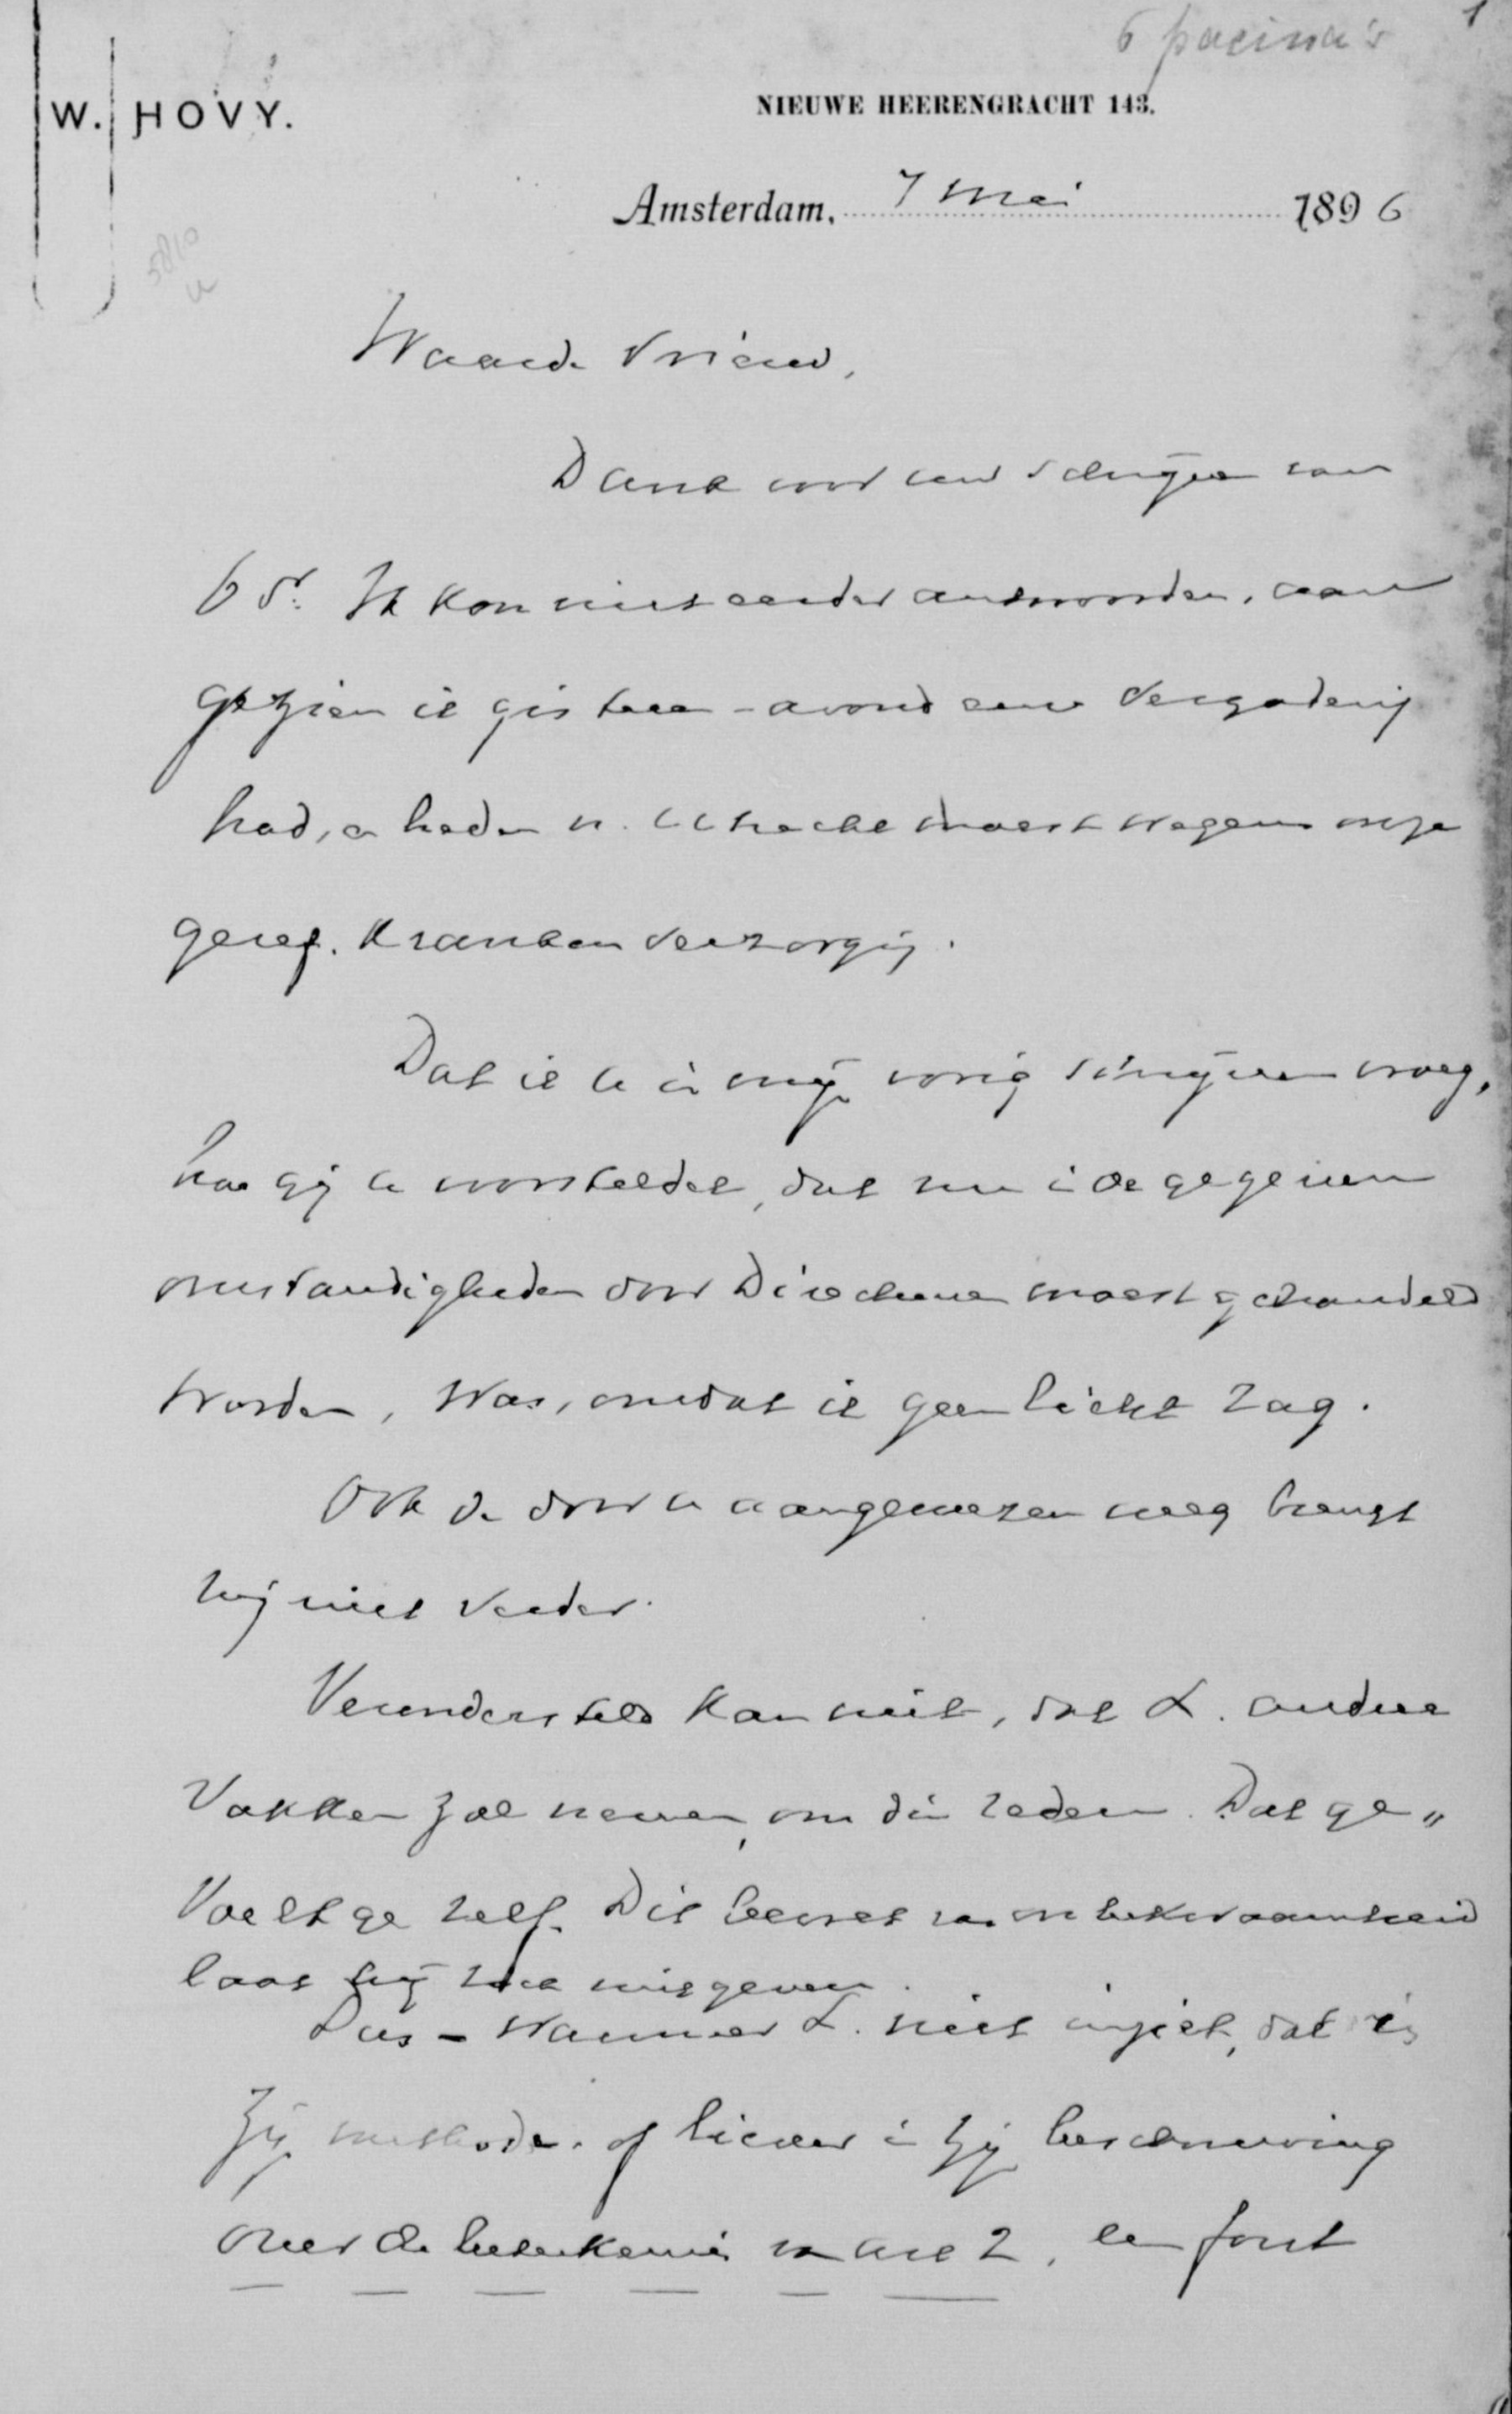 6 pagina's 1
W. HOVY.
NIEUWE HEERENGRACHT 143.
Amsterdam, 7 Mei 1896
5810
Waarde Vriend,
Dank voor uw schrijven van
6 dr. Ik kon niet eerder antwoorden, aan
gezien ik gisteren-avond eene vergaderig
had, en heden n. Utrecht moest wegens onze
geref. Krankenverzorgig.
Dat ik u in mijn vorig schrijven vroeg,
hoe gij u voorsteldet, dat nu in de gegeven
omstandigheden door Directeuren moest gehandeld
worden, was, omdat ik geen licht zag.
Ook de door u aangewezen weg brengt
mij niet verder.
Verondersteld kan niet, dat L. andere
Vakken zal nemen, om die reden. Dat ge„
Voelt ge zelf. Dit bewijs van onbekwaamheid
laat hij zich niet geven.
Dus - Wanneer L. niet inziet, dat in
zijn methode, of liever in zijn beschouwing
over de beteekenis van art 2, een fout